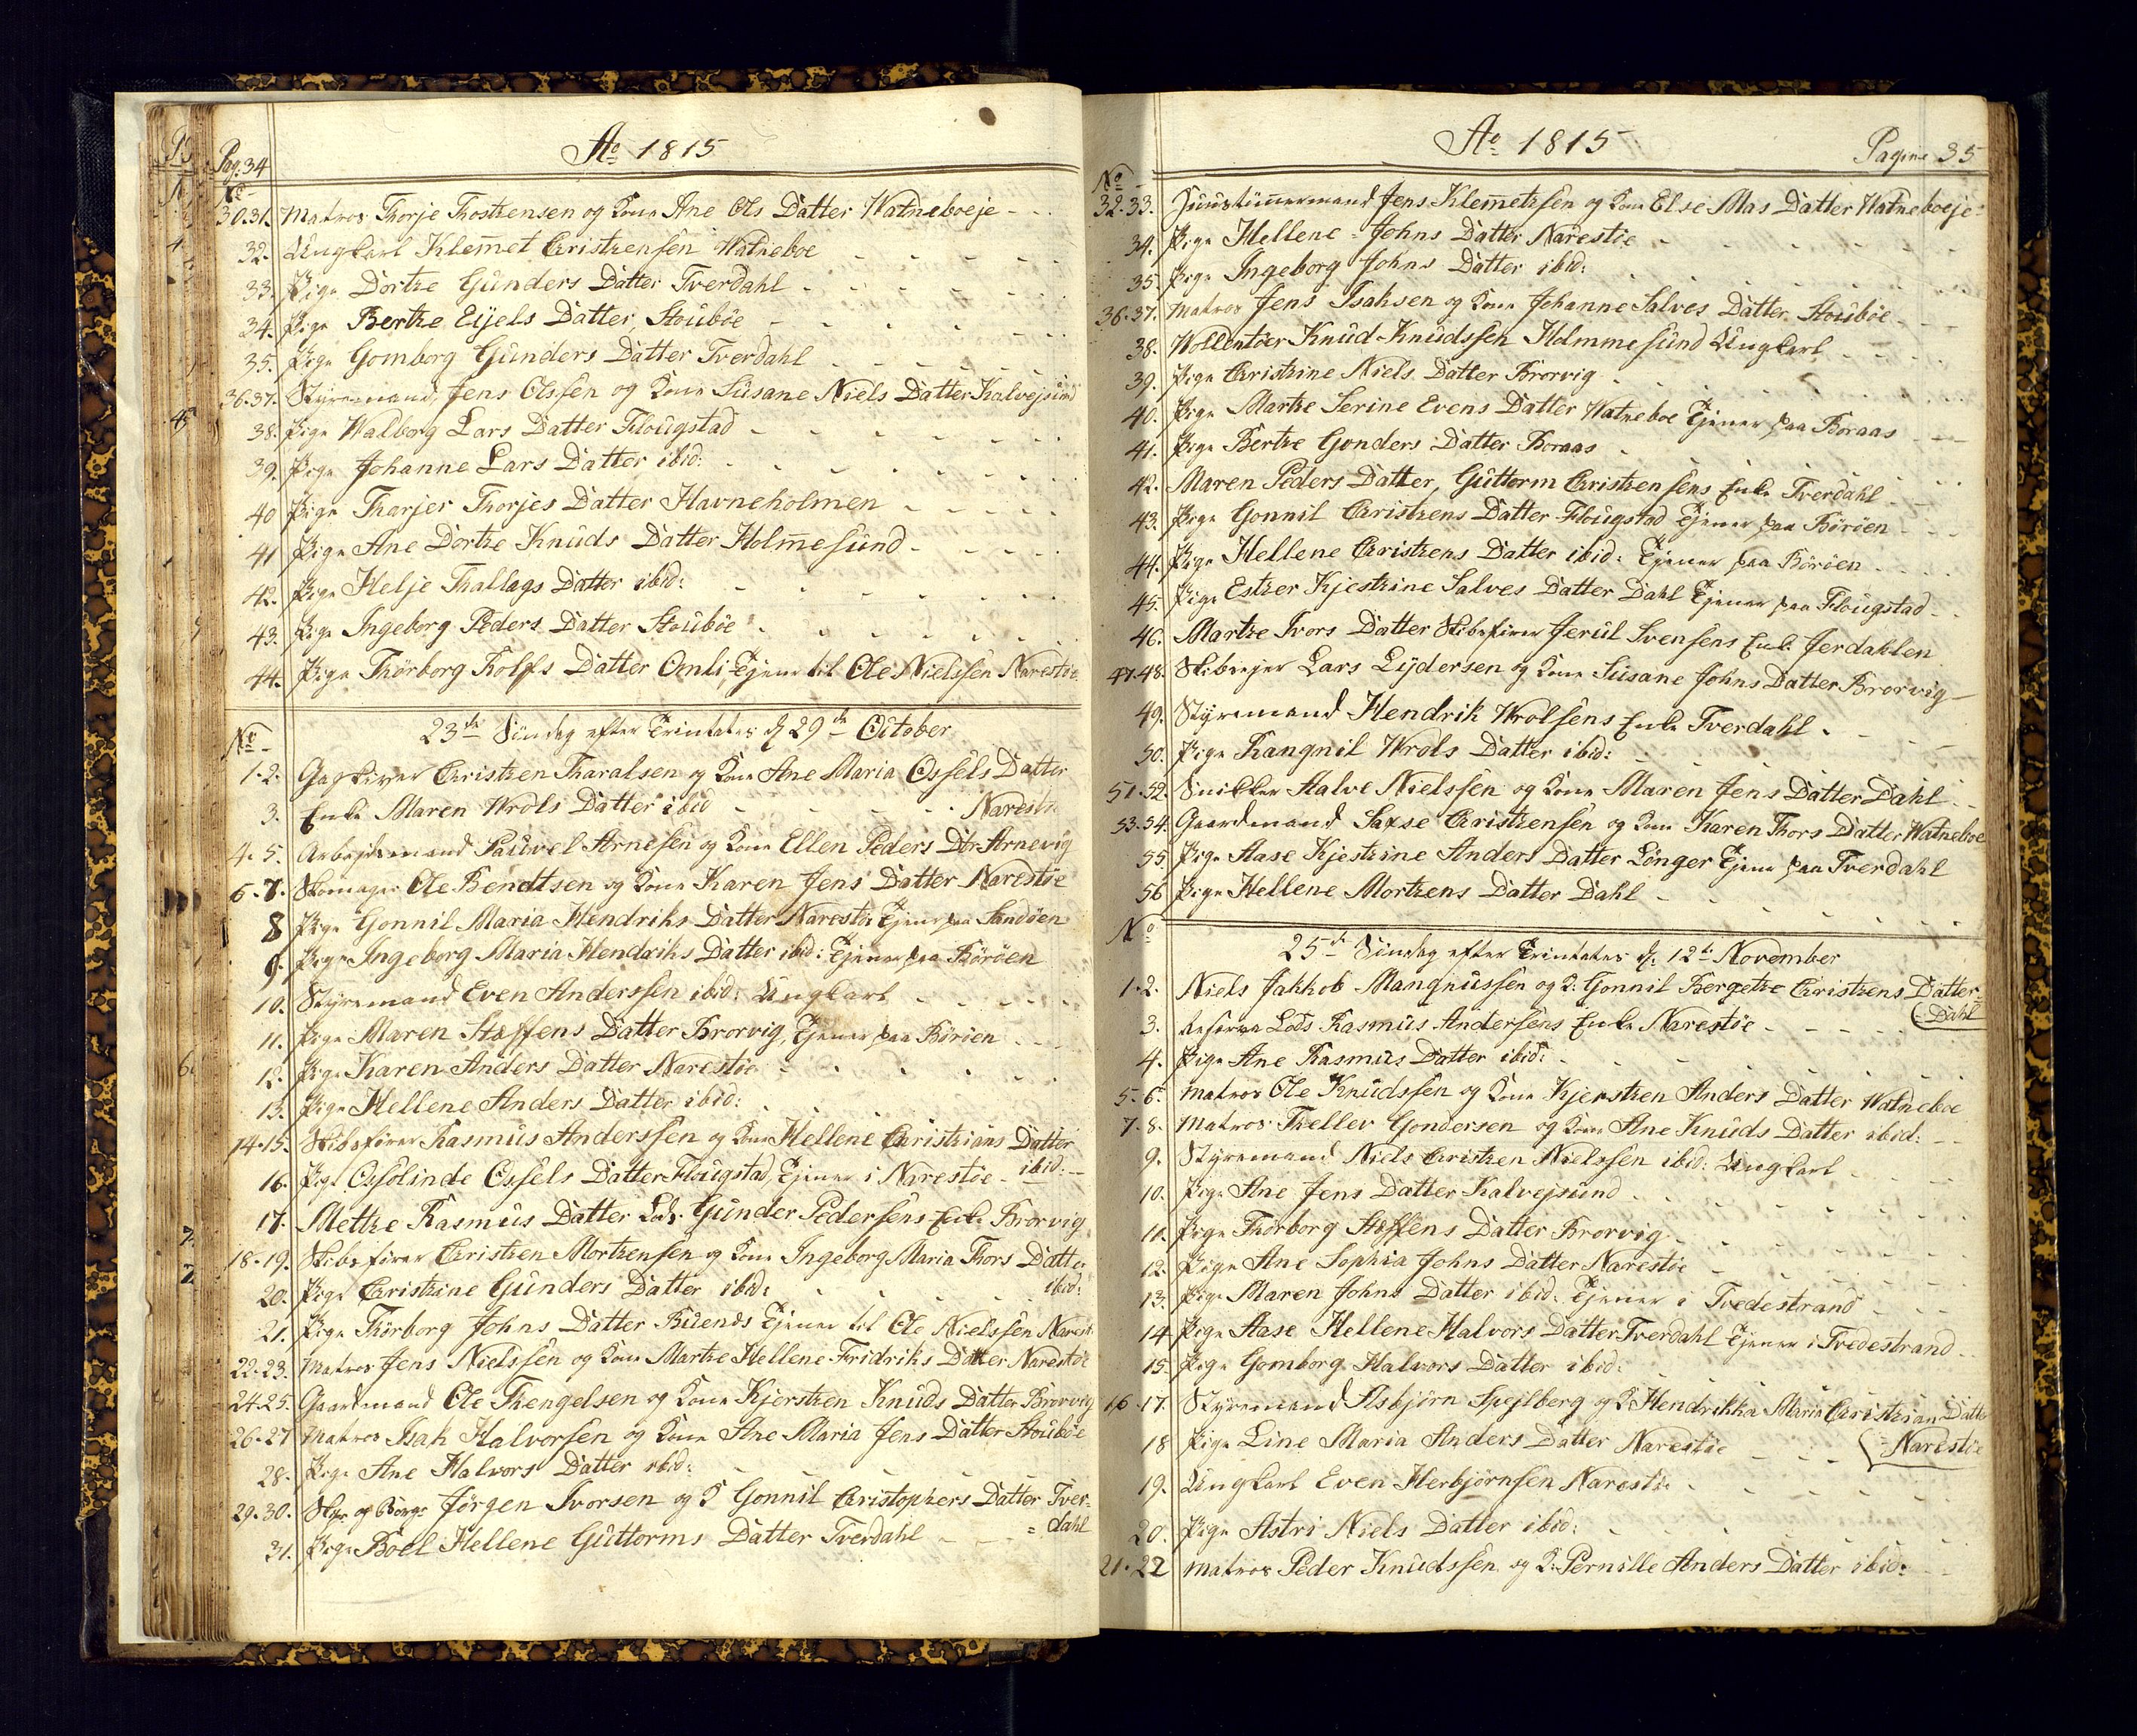 Pag: 34
Ao 1815
No
30.31. Matros Thorje Thostensen og Kone Ane Ols Datter Watneboeje
32. Ungkarl Klemet Christhensen Watneboe
33. Pige Dorthe Gunders Datter Tverdahl
34. Pige Berthe Eijels Datter, Stouböe
35. Pige Gomborg Gunders Datter Tverdahl
36.37. Styremand, Jens Olssen og Kone Susane Niels Datter Kalvejsund
38. Pige Walborg Lars Datter Flougstad
39. Pige Johanne Lars Datter ibid:
40 Pige Tharjer Thorjes Datter Havneholmen
41 Pige Ane Dorthe Knuds Datter Holmesund
42. Pige Helje Thallags Datter ibid:
43. Pige Ingeborg Peders Datter Stouböe
44. Pige Thörborg Rolfs Datter Omli, Tjener til Ole Nielssen Narestöe
No
23de Sündag efter Trinitatis d 29de October
1.2. Gastgiver Christhen Tharalsen og Kone Ane Maria Ossels Datter
3. Enke Maren Wrols Datter ibid Narestöe
4.5. Arbejdsmand Pauwel Arnesen og Kone Ellen Peders Dtr Arnevig
6.7. Skomager Ole Bendtsen og Kone Karen Jens Datter Narestöe
8 Pige Gonnil Maria Hendriks Datter Narestöe Tjener paa Sandöen
9. Pige Ingeborg Maria Hendriks Datter ibid: Tjener paa Böröen
10. Styremand Even Anderssen ibid: Ungkarl
11. Pige Maren Steffens Datter Brorvig, Tjener paa Böröen
12. Pige Karen Anders Datter Narestöe
13. Pige Hellene Anders Datter ibid:
14.15. Skibsförer Rasmus Anderssen og Kone Hellene Christhians Datter
16. Pige Ossolinde Ossels Datter Flougstad, Tjener i Narestöe ibid:
17. Metthe Rasmus Datter Lods Gunder Pedersens Enke Brorvig
18.19. Skibsförer Christhen Morthensen og Kone Ingeborg Maria Thors Datter
20. Pige Christhine Gunders Datter ibid: ibid:
21. Pige Thörborg Johns Datter Buends Tjener til Ole Nielssen Narest
22.23. Matros Jens Nielssen og Kone Marthe Hellene Fridriks Datter Narestöe
24.25. Gaardmand Ole Thengelsen og Kone Kjersthen Knuds Datter Brorvig
26.27 Matros Isak Halvorsen og Kone Ane Maria Jens Datter Stouböe
28. Pige Ane Halvors Datter ibid:
29.30. Skpr og Borgr Jörgen Ivorsen og K Gonnil Christophers Datter Tver=
31. Pige Boel Hellene Guttorms Datter Tverdahl =dahl
Ao 1815
Pagina 35
No
32.33. Huustimermand Jens Klemetsen og Kone Else Mas Datter Watneboeje
34. Pige Hellene Johns Datter Narestöe
35. Pige Ingeborg Johns Datter ibid:
36.37. Matros Jens Isaksen og Kone Johanne Salves Datter Stouböe
38. Wollentöer Knud Knudssen Holmmesund Ungkarl
39. Pige Christhine Niels Datter Brorvig
40. Pige Marthe Serine Evens Datter Watneboe Tjener paa Boraas
41. Pige Berthe Gonders Datter Boraas
42. Maren Peders Datter, Guttorm Christhensens Enke Tverdahl
43. Pige Gonnil Christhens Datter Flougstad Tjener paa Böröen
44. Pige Hellene Christhens Datter ibid: Tjener paa Böröen
45. Pige Esther Kjesthine Salves Datter Dahl Tjener paa Flougstad
46. Marthe Ivors Datter Skibsförer Jerul Svensens Enke Jerdahlen
47.48. Skibsejer Lars Lijdersen og Kone Susane Johns Datter Brorvig
49. Styremand Hendrik Wrolsens Enke Tverdahl
50. Pige Rangnil Wrols Datter ibid:
51.52. Snikker Halve Nielssen og Kone Maren Jens Datter Dahl
53.54. Gaardmand Saxse Christhensen og Kone Karen Thors Datter Watneboe
55 Pige Aase Kjesthine Anders Datter Longer Tjener paa Tverdahl
56 Pige Hellene Morthens Datter Dahl
No
25de Sündag efter Trinitatis d. 12te November
1.2. Niels Jakkob Mangnussen og K: Gonnil Bergethe Christhens Datter
3. Lods Rasmus Andersens Enke Narestöe Dahl
4. Pige Ane Rasmus Datter ibid:
5.6. Matros Ole Knudssen og Kone Kjersthen Anders Datter Watneboe
7.8. Matros Thellev Gondersen og Kone Ane Knuds Datter ibid:
9. Styremand Niels Christhen Nielssen ibid: Ungkarl
10. Pige Ane Jens Datter Kalvejsund
11. Pige Thorborg Steffens Datter Brorvig
12. Pige Ane Sophia Johns Datter Narestöe
13. Pige Maren Johns Datter ibid: Tjener i Tvedestrand
14 Pige Aase Hellene Halvors Datter Tverdahl Tjener i Tvedestrand
15. Pige Gomborg Halvors Datter ibid:
16.17. Styremand Asbjörn Spejlberg og K: Hendrikka Maria Christhian Datter
18 Pige Line Maria Anders Datter Narestöe Narestöe
19. Ungkarl Even Herbjörnsen Narestöe
20. Pige Astri Niels Datter ibid:
21.22 Matros Peder Knudssen og K: Pernille Anders Datter ibid: